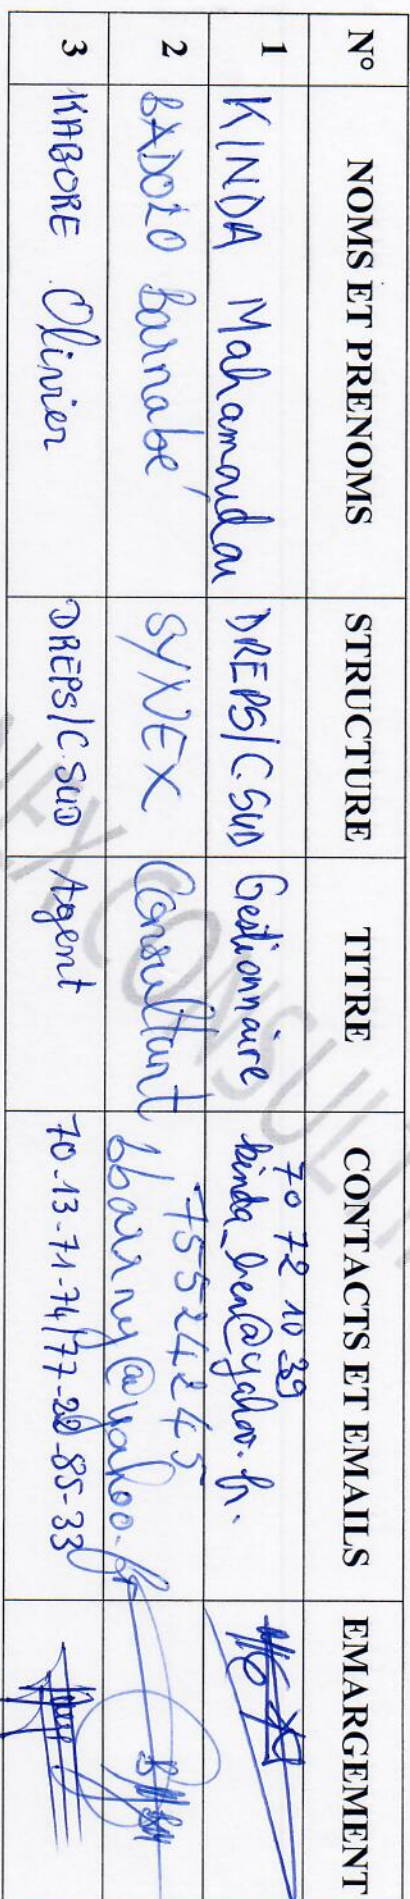 N° NOMS ET PRENOMS STRUCTURE TITRE CONTACTS ET EMAILS EMARGEMENT
1 KINDA Mahamoudou DREPS/C.SUD Gestionnaire 70 72 10 39
kinda_ben@yahoo.fr.
2 BADOLO Barnabé SYNEX Consultant 75524245
bbarny@yahoo.fr
3 KABORE Olivier DREPS/C.SUD Agent 70-13-71-74/77-22-85-33